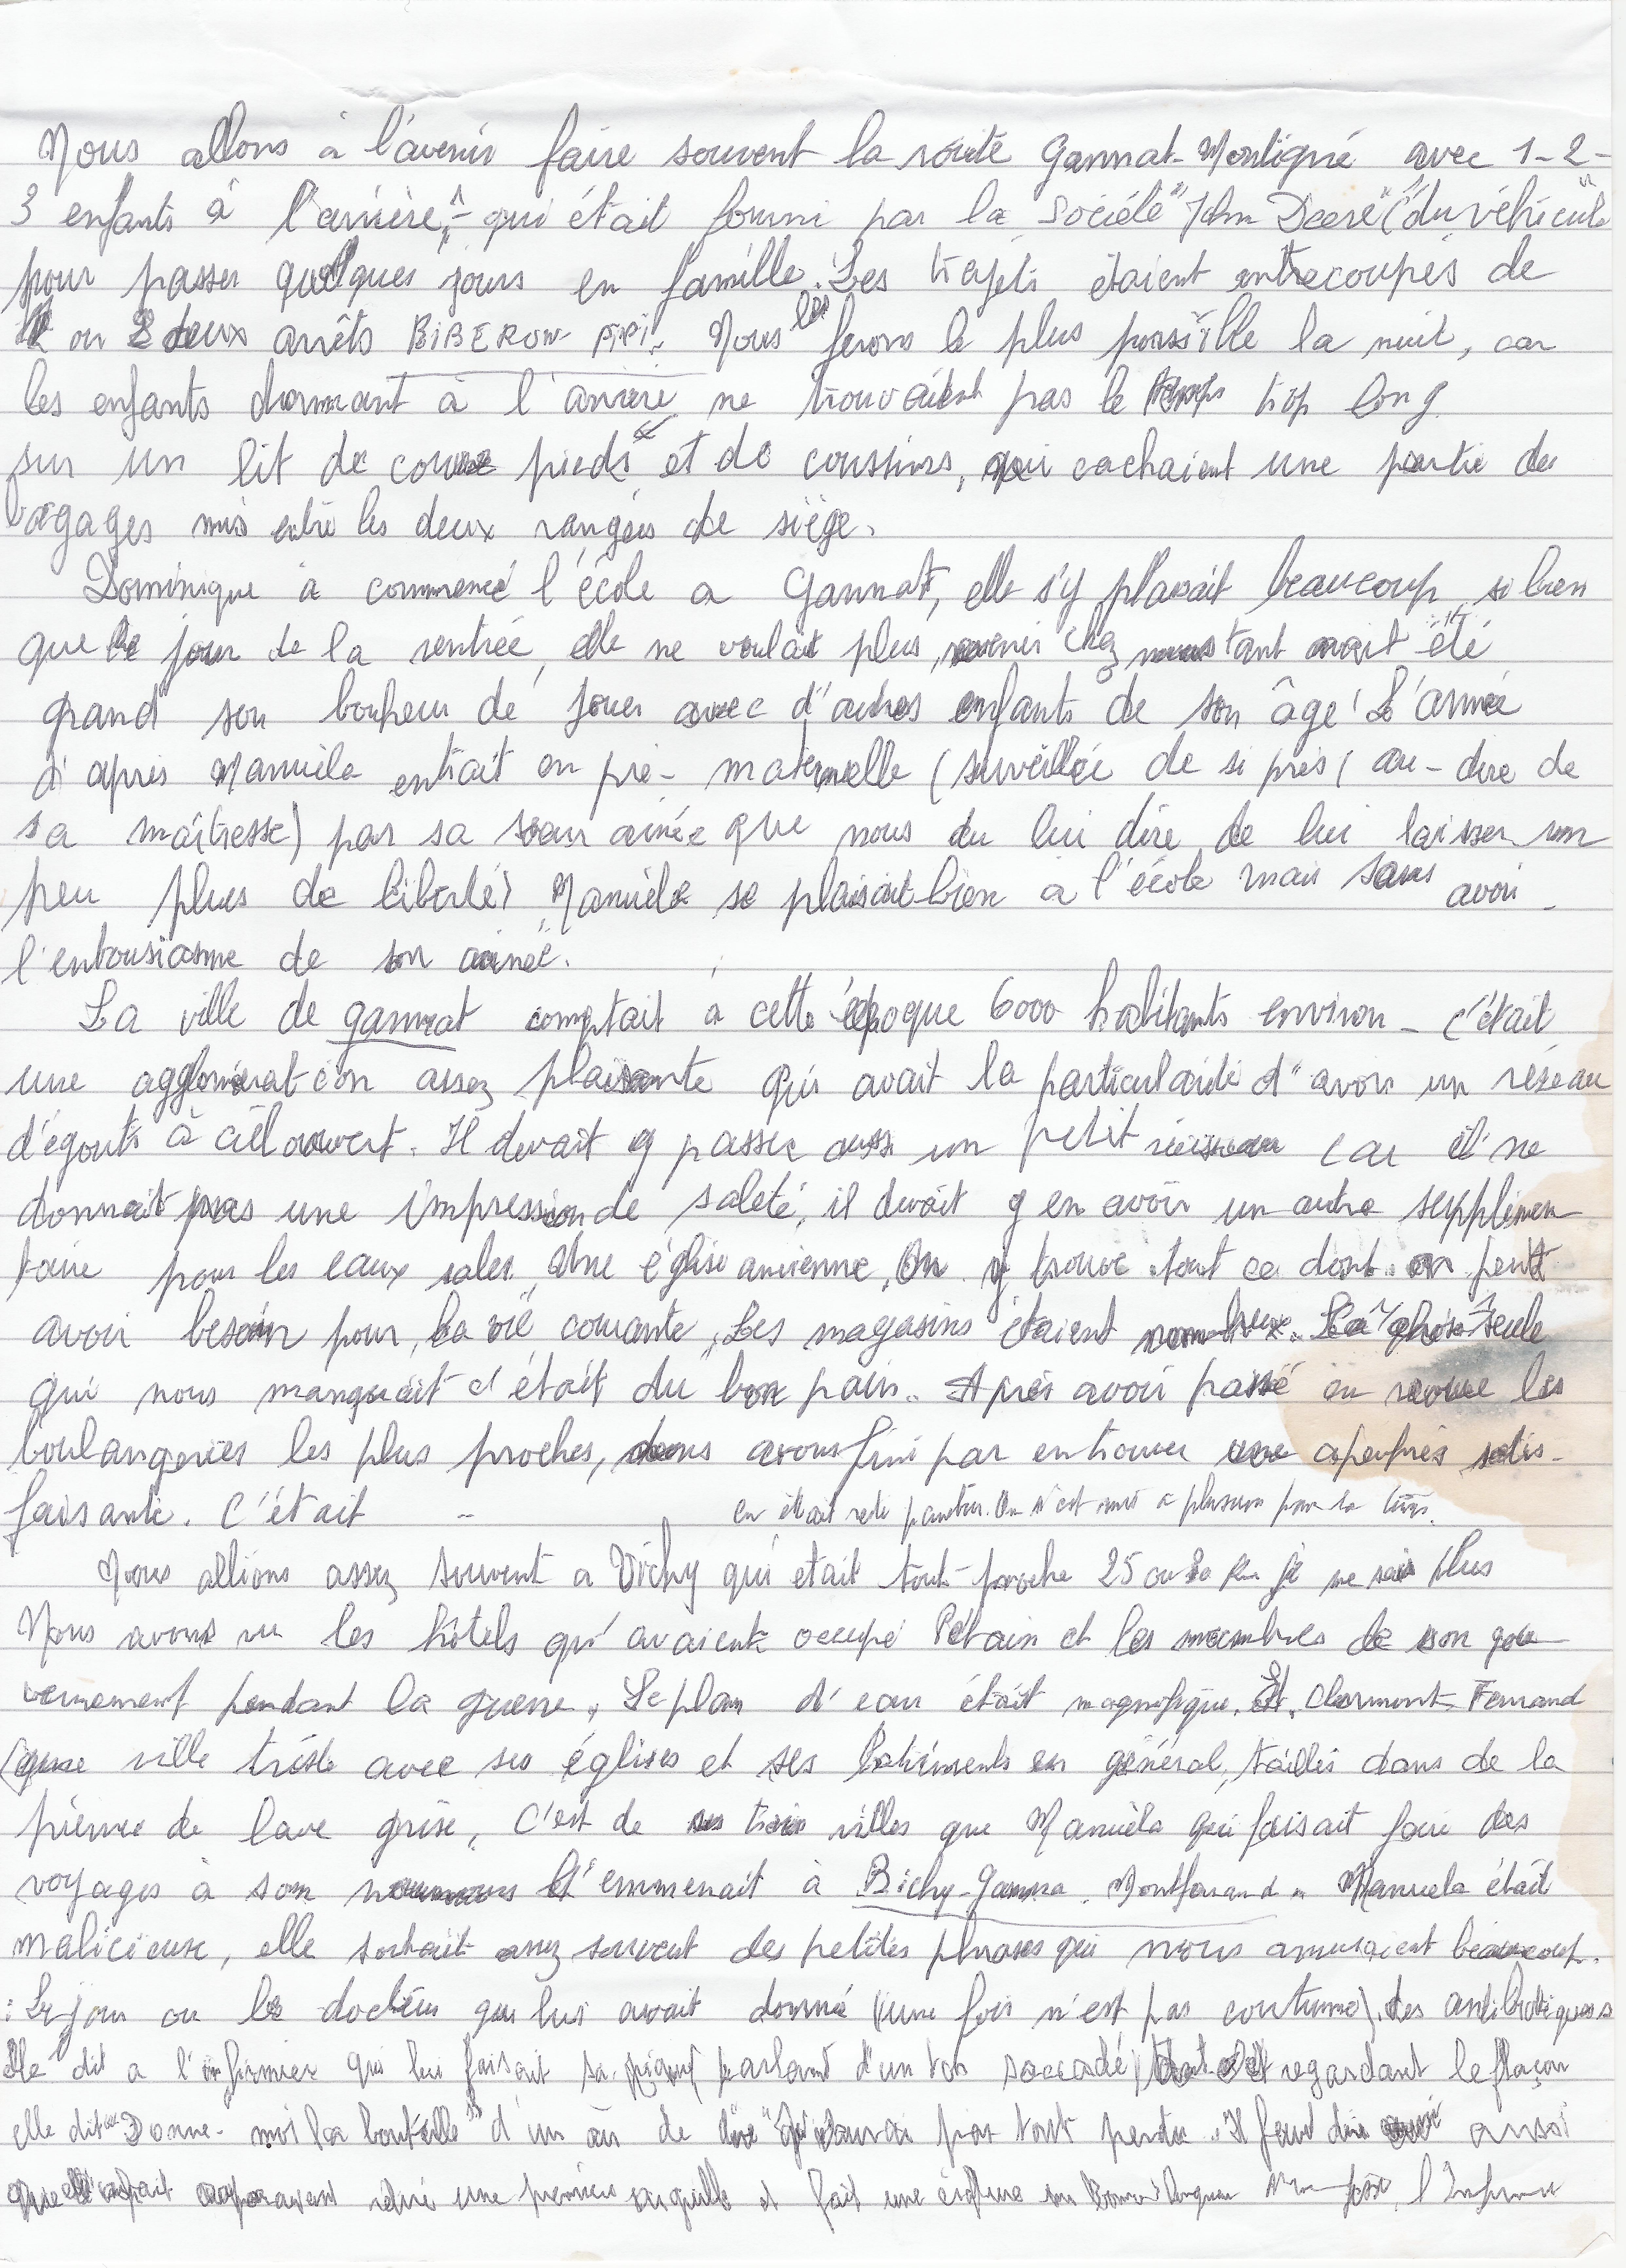 Nous allons à l'avenir faire souvent la route Gannat-Montigné avec 1-2-
3 enfants à l'arrière, - qui était fourni par la Société "John Deere" ("du véhicule"
pour passer quelques jours en famille. Les trajets étaient entrecoupés de
ou 2 deux arrêts BIBERON PIPI. Nous les ferons le plus possible la nuit, car
les enfants dormant à l'arrière ne trouvaient pas le temps trop long
sur un lit de couvre pieds et de coussins, qui cachaient une partie des
bagages mis entre les deux rangées de siège.
Dominique a commencé l'école a Gannat, elle s'y plaisait beaucoup si bien
que le jour de la rentrée, elle ne voulait plus, revenir chez nous tant avait été
grand son bonheur de jouer avec d'autres enfants de son âge ! L'année
d'après Manuèla entrait en pré-maternelle (surveillée de si près (au-dire de
sa maîtresse) par sa sœur ainée que nous du lui dire de lui laisser un
peu plus de liberté) Manuèla se plaisait bien a l'école mais sans avoir
l'entousiasme de son ainée.
La ville de gannat comptait à cette époque 6000 habitants environ - c'était
une agglomération assez plaisante qui avait la particularité d'avoir un réseau
d'égouts à ciel ouvert. Il devait y passer aussi un petit ruisseau car il ne
donnait pas une impression de saleté, il devait y en avoir un autre supplémen-
taire pour les eaux sales. Une église ancienne. On y trouve tout ce dont on peut
avoir besoin pour la vie courante. Les magasins étaient nombreux. La chose seule
qui nous manquait c'était du bon pain. Après avoir passé en revue les
boulangeries les plus proches, nous avons fini par en trouver une apeuprès satis-
faisante. C'était - on était
Nous allions assez souvent a Vichy qui était tout-proche 25 ou 30 km je ne sais plus
Nous avons vu les hôtels qu'avaient occupé Pétain et les membres de son gou-
vernement pendant la guerre. Le plan d'eau était magnifique. Et. Clermont-Ferrand
(une ville triste avec ses églises et ses batiments en général, taillés dans de la
pierre de lave grise. C'est de ces trois villes que Manuèla qui faisait faire des
voyages à son nounours l'emmenait à Bichy-Ganna. Montferrand. Manuela était
malicieuse, elle sortait assez souvent des petites phrases qui nous amusaient beaucoup.
: Le jour ou le docteur qui lui avait donné (une fois n'est pas coutume) des antibiotiques
elle dit a l'infirmier qui lui faisait sa piqure parlant d'un ton saccadé et regardant le flaçon
elle dit "Donne-moi la bouteille" d'un air de dire pas tout perdu. Il faut dire aussi
que elle avait auparavant retiré une première aiguille et fait une l'Infirmier